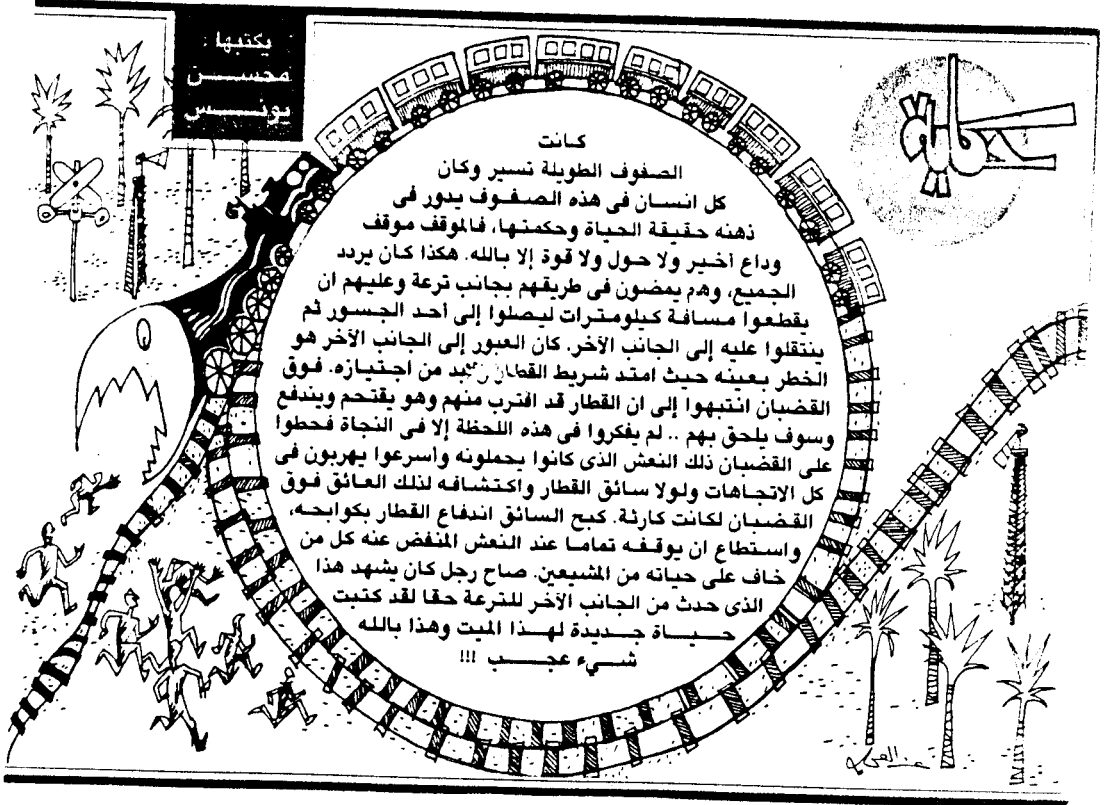 يكتبها :
محسن
يونس
كانت
الصفوف الطويلة تسير وكان
كل انسان فى هذه الصفوف يدور فى
ذهنه حقيقة الحياة وحكمتها، فالموقف موقف
وداع أخير ولا حول ولا قوة إلا بالله. هكذا كان يردد
الجميع، وهم يمضون فى طريقهم بجانب ترعة وعليهم ان
يقطعوا مسافة كيلومترات ليصلوا إلى أحد الجسور ثم
ينتقلوا عليه إلى الجانب الآخر. كان العبور إلى الجانب الآخر هو
الخطر بعينه حيث امتد شريط القطار من اجتيازه. فوق
القضبان انتبهوا إلى ان القطار قد اقترب منهم وهو يقتحم ويندفع
وسوف يلحق بهم .. لم يفكروا فى هذه اللحظة إلا فى النجاة فحطوا
على القضبان ذلك النعش الذى كانوا يحملونه وأسرعوا يهربون فى
كل الاتجاهات ولولا سائق القطار واكتشافه لذلك العائق فوق
القضبان لكانت كارثة. كبح السائق اندفاع القطار بكوابحه،
واستطاع ان يوقفه تماما عند النعش المنفض عنه كل من
خاف على حياته من المشيعين. صاح رجل كان يشهد هذا
الذى حدث من الجانب الآخر للترعة حقا لقد كتبت
حياة جديدة لهذا الميت وهذا بالله
شىء عجب !!!